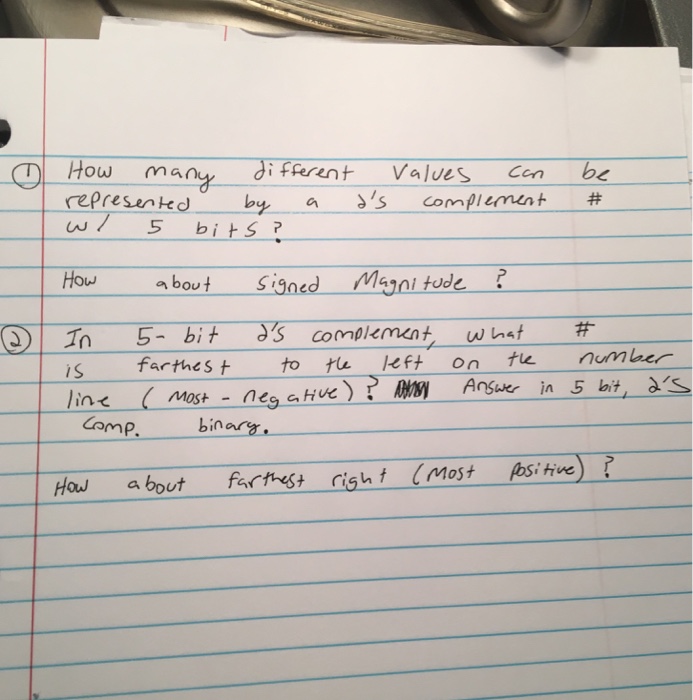 ① How many different values can be
represented by a 2's complement #
w/ 5 bits?
How about signed Magnitude?
② In 5-bit 2's complement, what #
is farthest to the left on the number
line (most-negative)? Answer in 5 bit, 2's
Comp. binary.
How about farthest right (most positive)?